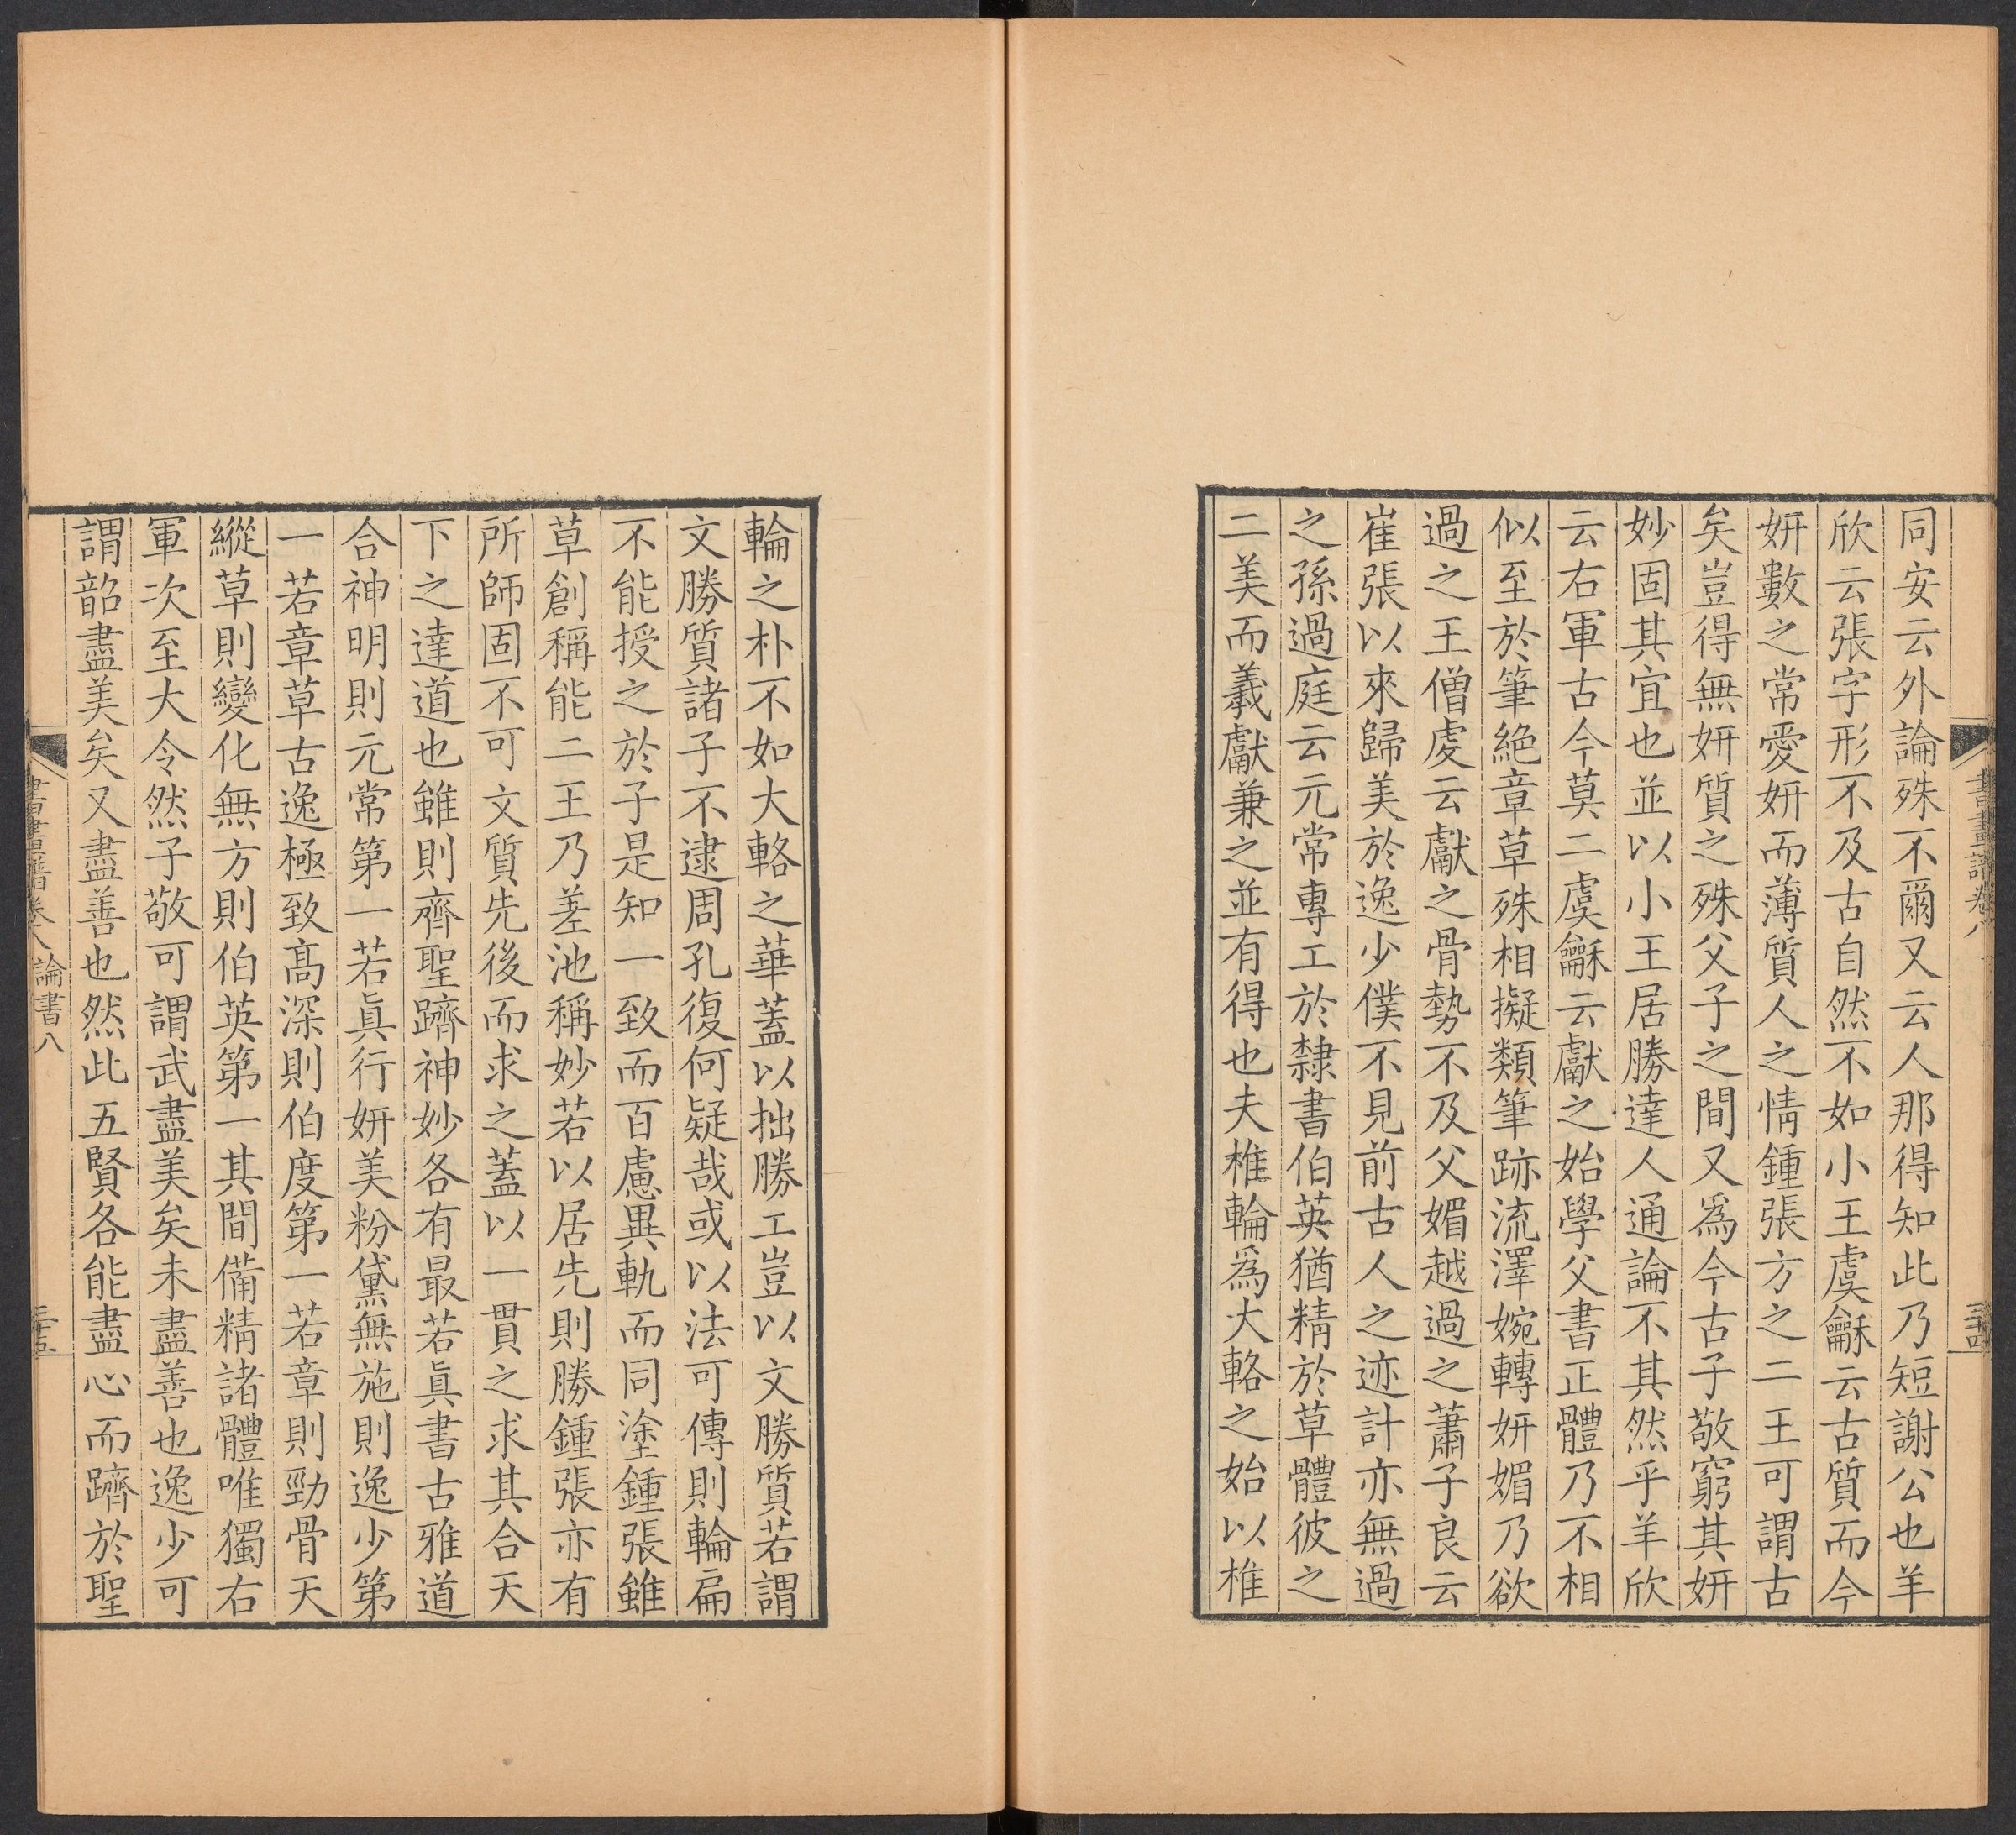 同安云外論殊不爾又云人那得知此乃短謝公也羊
欣云張字形不及古自然不如小王虞龢云古質而今
姸數之常愛姸而薄質人之情鍾張方之二王可謂古
矣豈得無姸質之殊父子之間又爲今古子敬窮其姸
妙固其宜也並以小王居勝達人通論不其然乎羊欣
云右軍古今莫二虞龢云獻之始學父書正體乃不相
似至於筆絶章草殊相擬類筆跡流澤婉轉姸媚乃欲
過之王僧虔云獻之骨勢不及父媚越過之蕭子良云
崔張以來歸美於逸少僕不見前古人之迹計亦無過
之孫過庭云元常專工於隸書伯英猶精於草體彼之
二美而羲獻兼之並有得也夫椎輪爲大輅之始以椎
書畫譜卷八
三十四
輪之朴不如大輅之華蓋以拙勝工豈以文勝質若謂
文勝質諸子不逮周孔復何疑哉或以法可傳則輪扁
不能授之於子是知一致而百慮異軌而同塗鍾張雖
草創稱能二王乃差池稱妙若以居先則勝鍾張亦有
所師固不可文質先後而求之蓋以一貫之求其合天
下之達道也雖則齊聖躋神妙各有最若眞書古雅道
合神明則元常第一若眞行姸美粉黛無施則逸少第
一若章草古逸極致高深則伯度第一若章則勁骨天
縱草則變化無方則伯英第一其間備精諸體唯獨右
軍次至大令然子敬可謂武盡美矣未盡善也逸少可
謂韶盡美矣又盡善也然此五賢各能盡心而躋於聖
書畫譜卷八 論書八